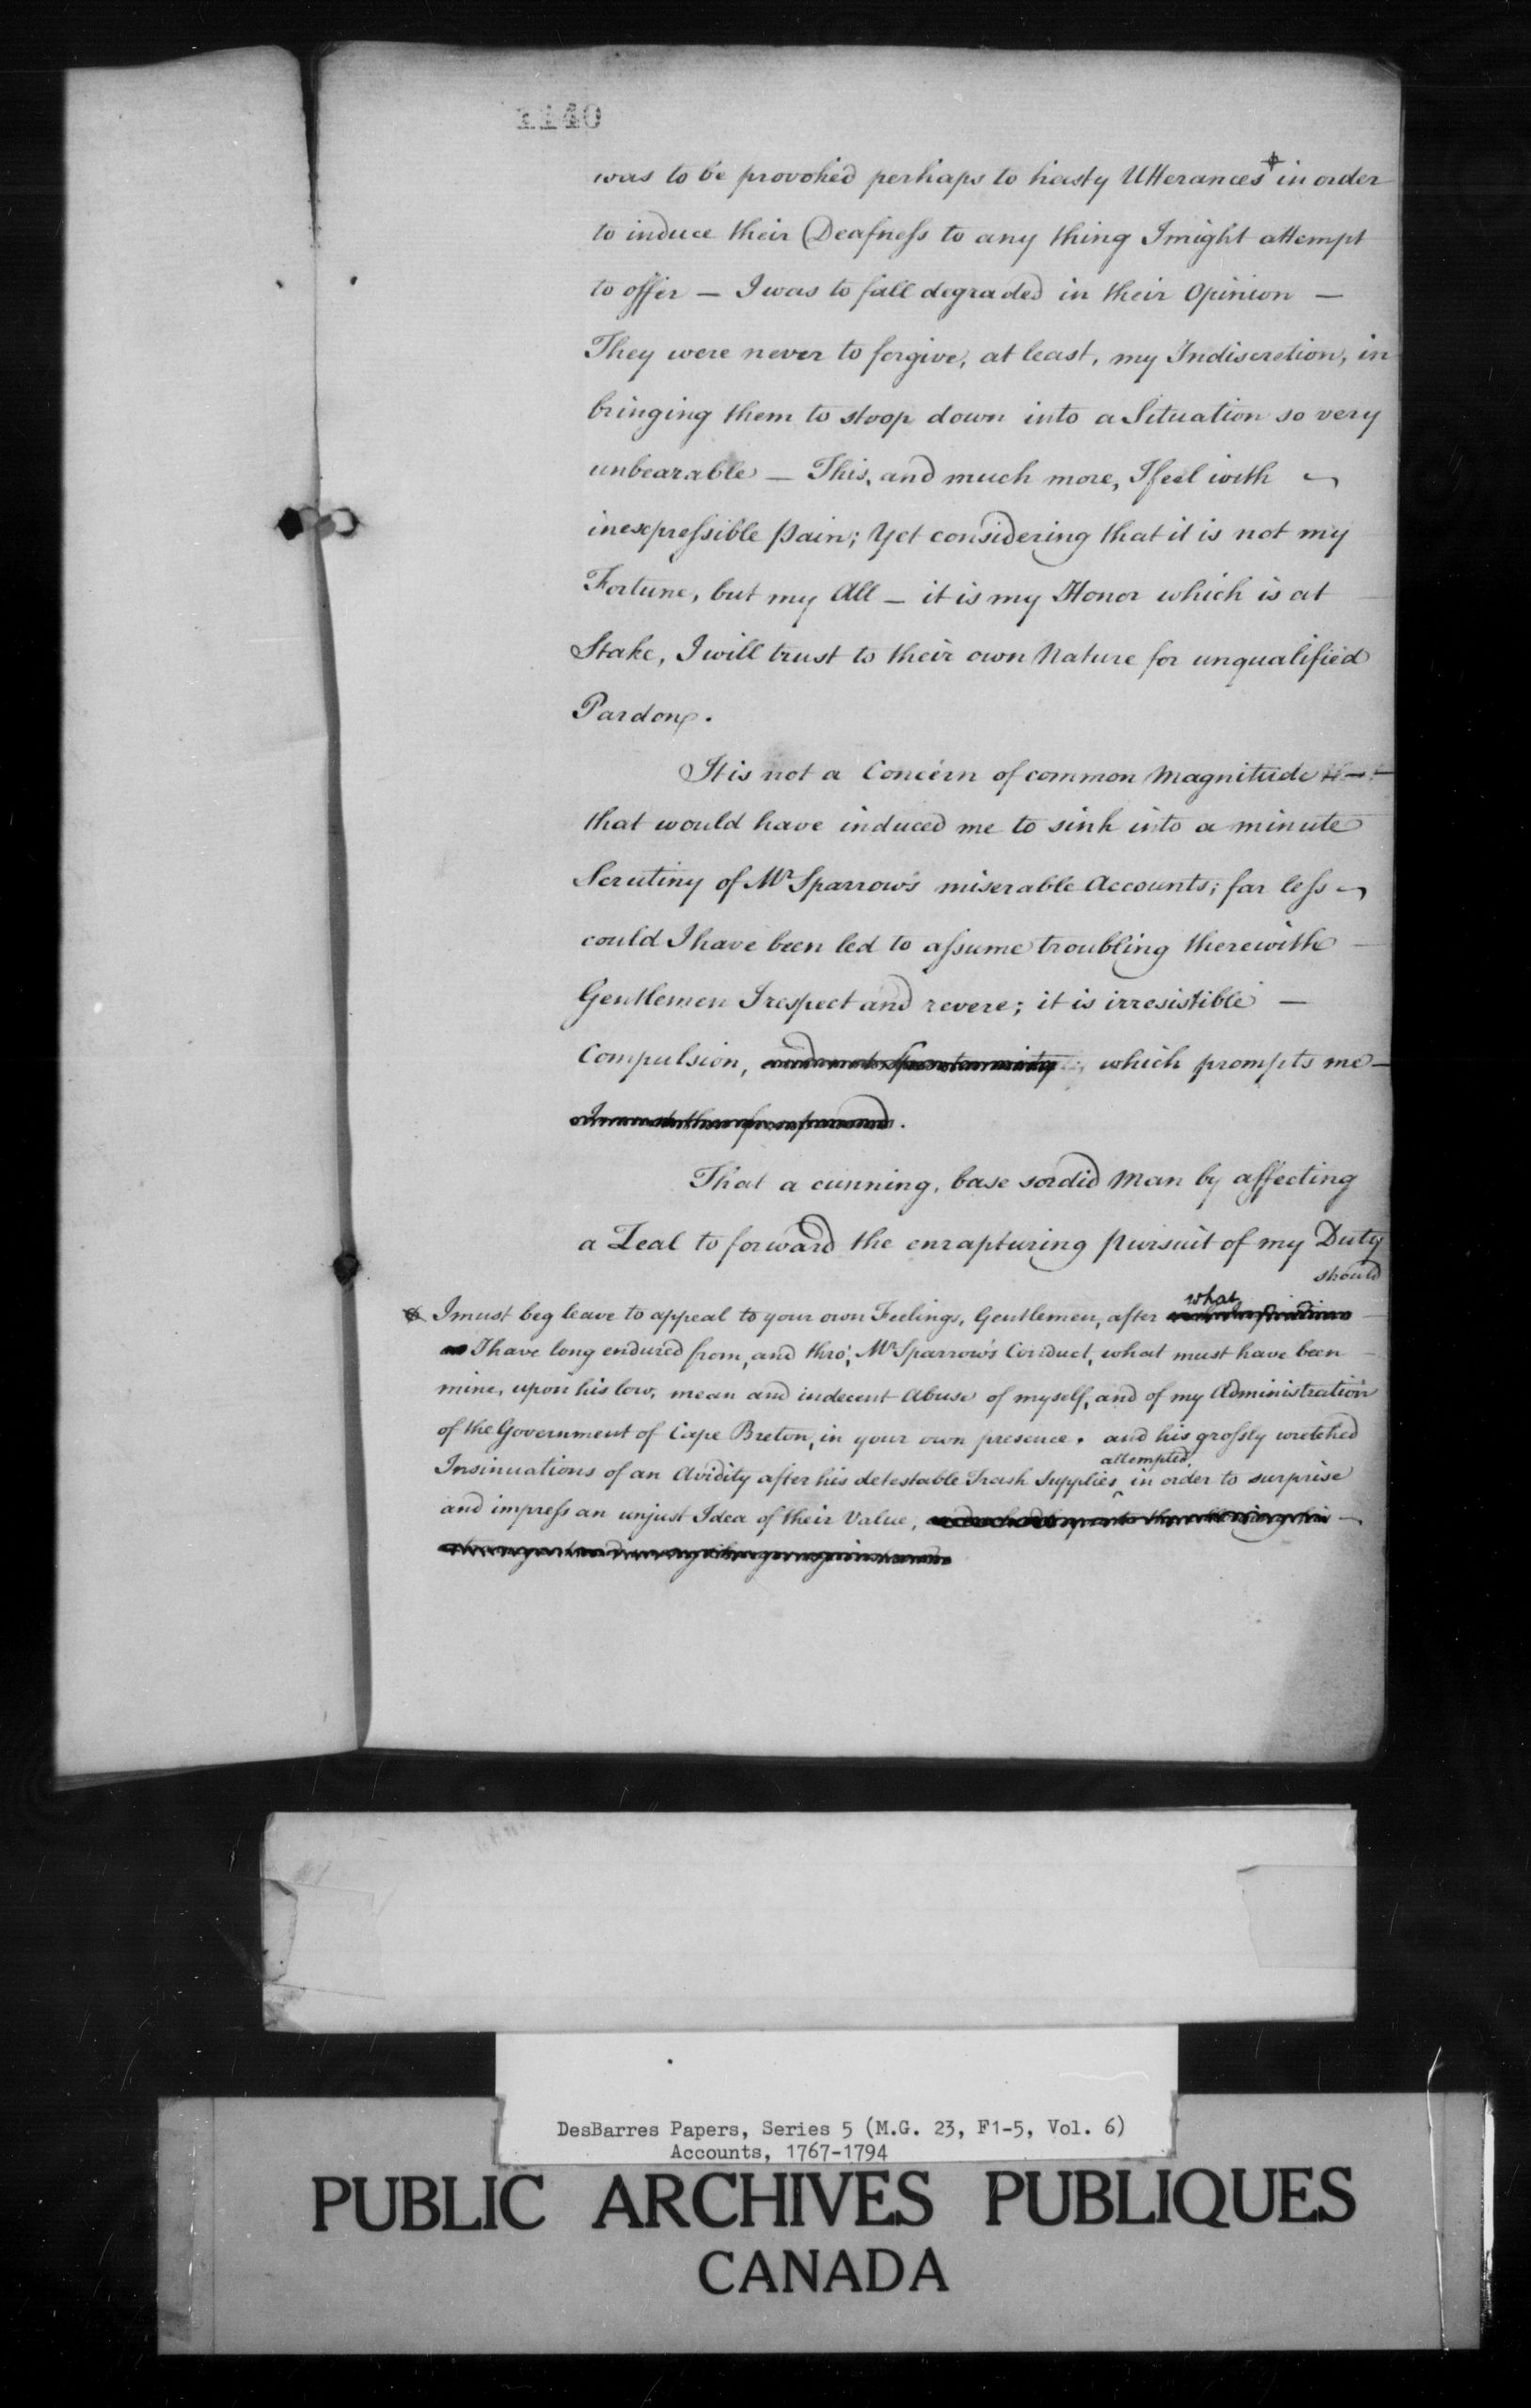 1140
was to be provoked perhaps to hasty Utterances in order
to induce their Deafness to any thing I might attempt
to offer — I was to fall degraded in their Opinion —
They were never to forgive, at least, my Indiscretion, in
bringing them to stoop down into a Situation so very
unbearable — This, and much more, I feel with
inexpressible Pain; Yet considering that it is not my
Fortune, but my All — it is my Honor which is at
Stake, I will trust to their own Nature for unqualified
Pardon.
It is not a Concern of common Magnitude
that would have induced me to sink into a minute
Scrutiny of Mr Sparrow's miserable Accounts; far less
could I have been led to assume troubling therewith
Gentlemen I respect and revere; it is irresistible —
Compulsion, and not spontaneity which prompts me —
That a cunning, base sordid Man by affecting
a Zeal to forward the enrapturing pursuit of my Duty
should
I must beg leave to appeal to your own Feelings, Gentlemen, after what
as I have long endured from, and thro', Mr Sparrow's Conduct, what must have been
mine, upon his low, mean and indecent Abuse of myself, and of my Administration
of the Government of Cape Breton, in your own presence. and his grossly wretched
Insinuations of an Avidity after his detestable Trash Supplies attempted, in order to surprise
and impress an unjust Idea of their Value,
DesBarres Papers, Series 5 (M.G. 23, F1-5, Vol. 6)
Accounts, 1767-1794
PUBLIC ARCHIVES PUBLIQUES
CANADA